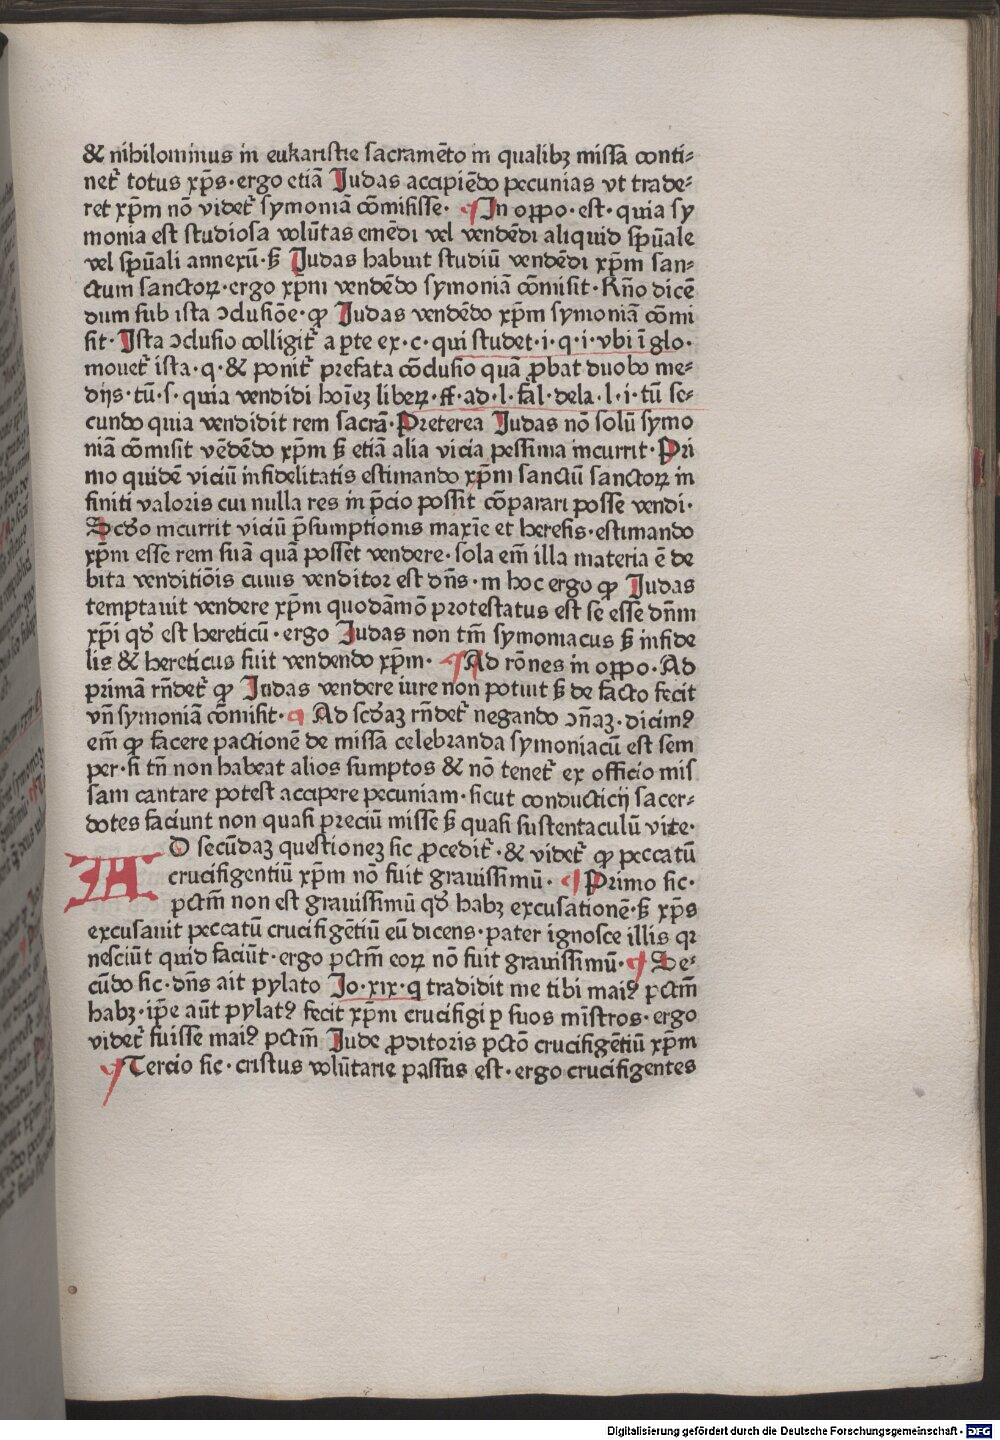 & nihilominus in eukaristie sacramēto in qualibꝫ missa conti⸗
net᷑ totus xp̄s · ergo etiā Judas accipiēdo pecunias vt trade⸗
ret xp̄m nō videt᷑ symoniā cōmisisse · ¶ In oppo · est · quia sy
monia est studiosa volūtas emēdi vel vendēdi aliquid sp̄uale
vel sp̄uali annexū · sꝫ Judas habuit studiū vendēdi xp̄m san⸗
ctum sanctoꝝ · ergo xp̄m vendēdo symoniā cōmisit · Rn̄o dicē
dum sub ista ↄclusiōe · ꝙ Judas vendēdo xp̄m symoniā cōmi
sit · Ista ↄclusio colligit᷑ a ꝑte ex · c · qui studet · i · q · i · vbi ī glo ·
mouet᷑ ista · q · & ponit᷑ prefata cōclusio quā ꝓbat duobo me⸗
dijs · tū · s · quia vendidi hoīeꝫ libeꝝ · ff · ad · l · fal · dela · l · i · tū se⸗
cundo quia vendidit rem sacrā · Preterea Judas nō solū symo
niā cōmisit vēdēdo xp̄m sꝫ etiā alia vicia pessima incurrit · Pri
mo quidē viciū infidelitatis estimando xp̄m sanctū sanctoꝝ in
finiti valoris cui nulla res in p̄cio possit cōparari posse vendi ·
Scd̄o incurrit viciū p̄sumptionis maxīe et heresis · estimando
xp̄m esse rem suā quā posset vendere · sola em̄ illa materia ē de
bita venditiōis cuius venditor est dn̄s · in hoc ergo ꝙ Judas
temptauit vendere xp̄m quodāmō protestatus est se esse dn̄m
xp̄i qd̄ est hereticū · ergo Judas non tm̄ symoniacus sꝫ infide
lis & hereticus fuit vendendo xp̄m · ¶ Ad rōnes in oppo · Ad
primā rn̄det᷑ ꝙ Judas vendere iure non potuit sꝫ de facto fecit
vn̄ symoniā cōmisit · ¶ Ad scd̄aꝫ rn̄det᷑ negando ↄn̄aꝫ · dicimꝰ
em̄ ꝙ facere pactionē de missa celebranda symoniacū est sem
per · si tn̄ non habeat alios sumptos & nō tenet᷑ ex officio mis
sam cantare potest accipere pecuniam · sicut conducticij sacer⸗
dotes faciunt non quasi preciū misse sꝫ quasi sustentaculū vite ·
AD secūdaꝫ questioneꝫ sic ꝓcedit᷑ · & videt᷑ ꝙ peccatū
crucifigentiū xp̄m nō fuit grauissimū · ¶ Primo sic ·
pctm̄ non est grauissimū qd̄ habꝫ excusationē · sꝫ xp̄s
excusauit peccatū crucifigētiū eū dicens · pater ignosce illis qꝛ
nesciūt quid faciūt · ergo pctm̄ eoꝝ nō fuit grauissimū · ¶ Se⸗
cūdo sic · dn̄s ait pylato Jo · xix · q tradidit me tibi maiꝰ pctm̄
habꝫ · ip̄e aūt pylatꝰ fecit xp̄m crucifigi ꝑ suos mīstros · ergo
videt᷑ fuisse maiꝰ pctm̄ Jude ꝓditoris pctō crucifigētiū xp̄m
¶ Tercio sic · cristus volūtarie passus est · ergo crucifigentes
Digitalisierung gefördert durch die Deutsche Forschungsgemeinschaft · DFG